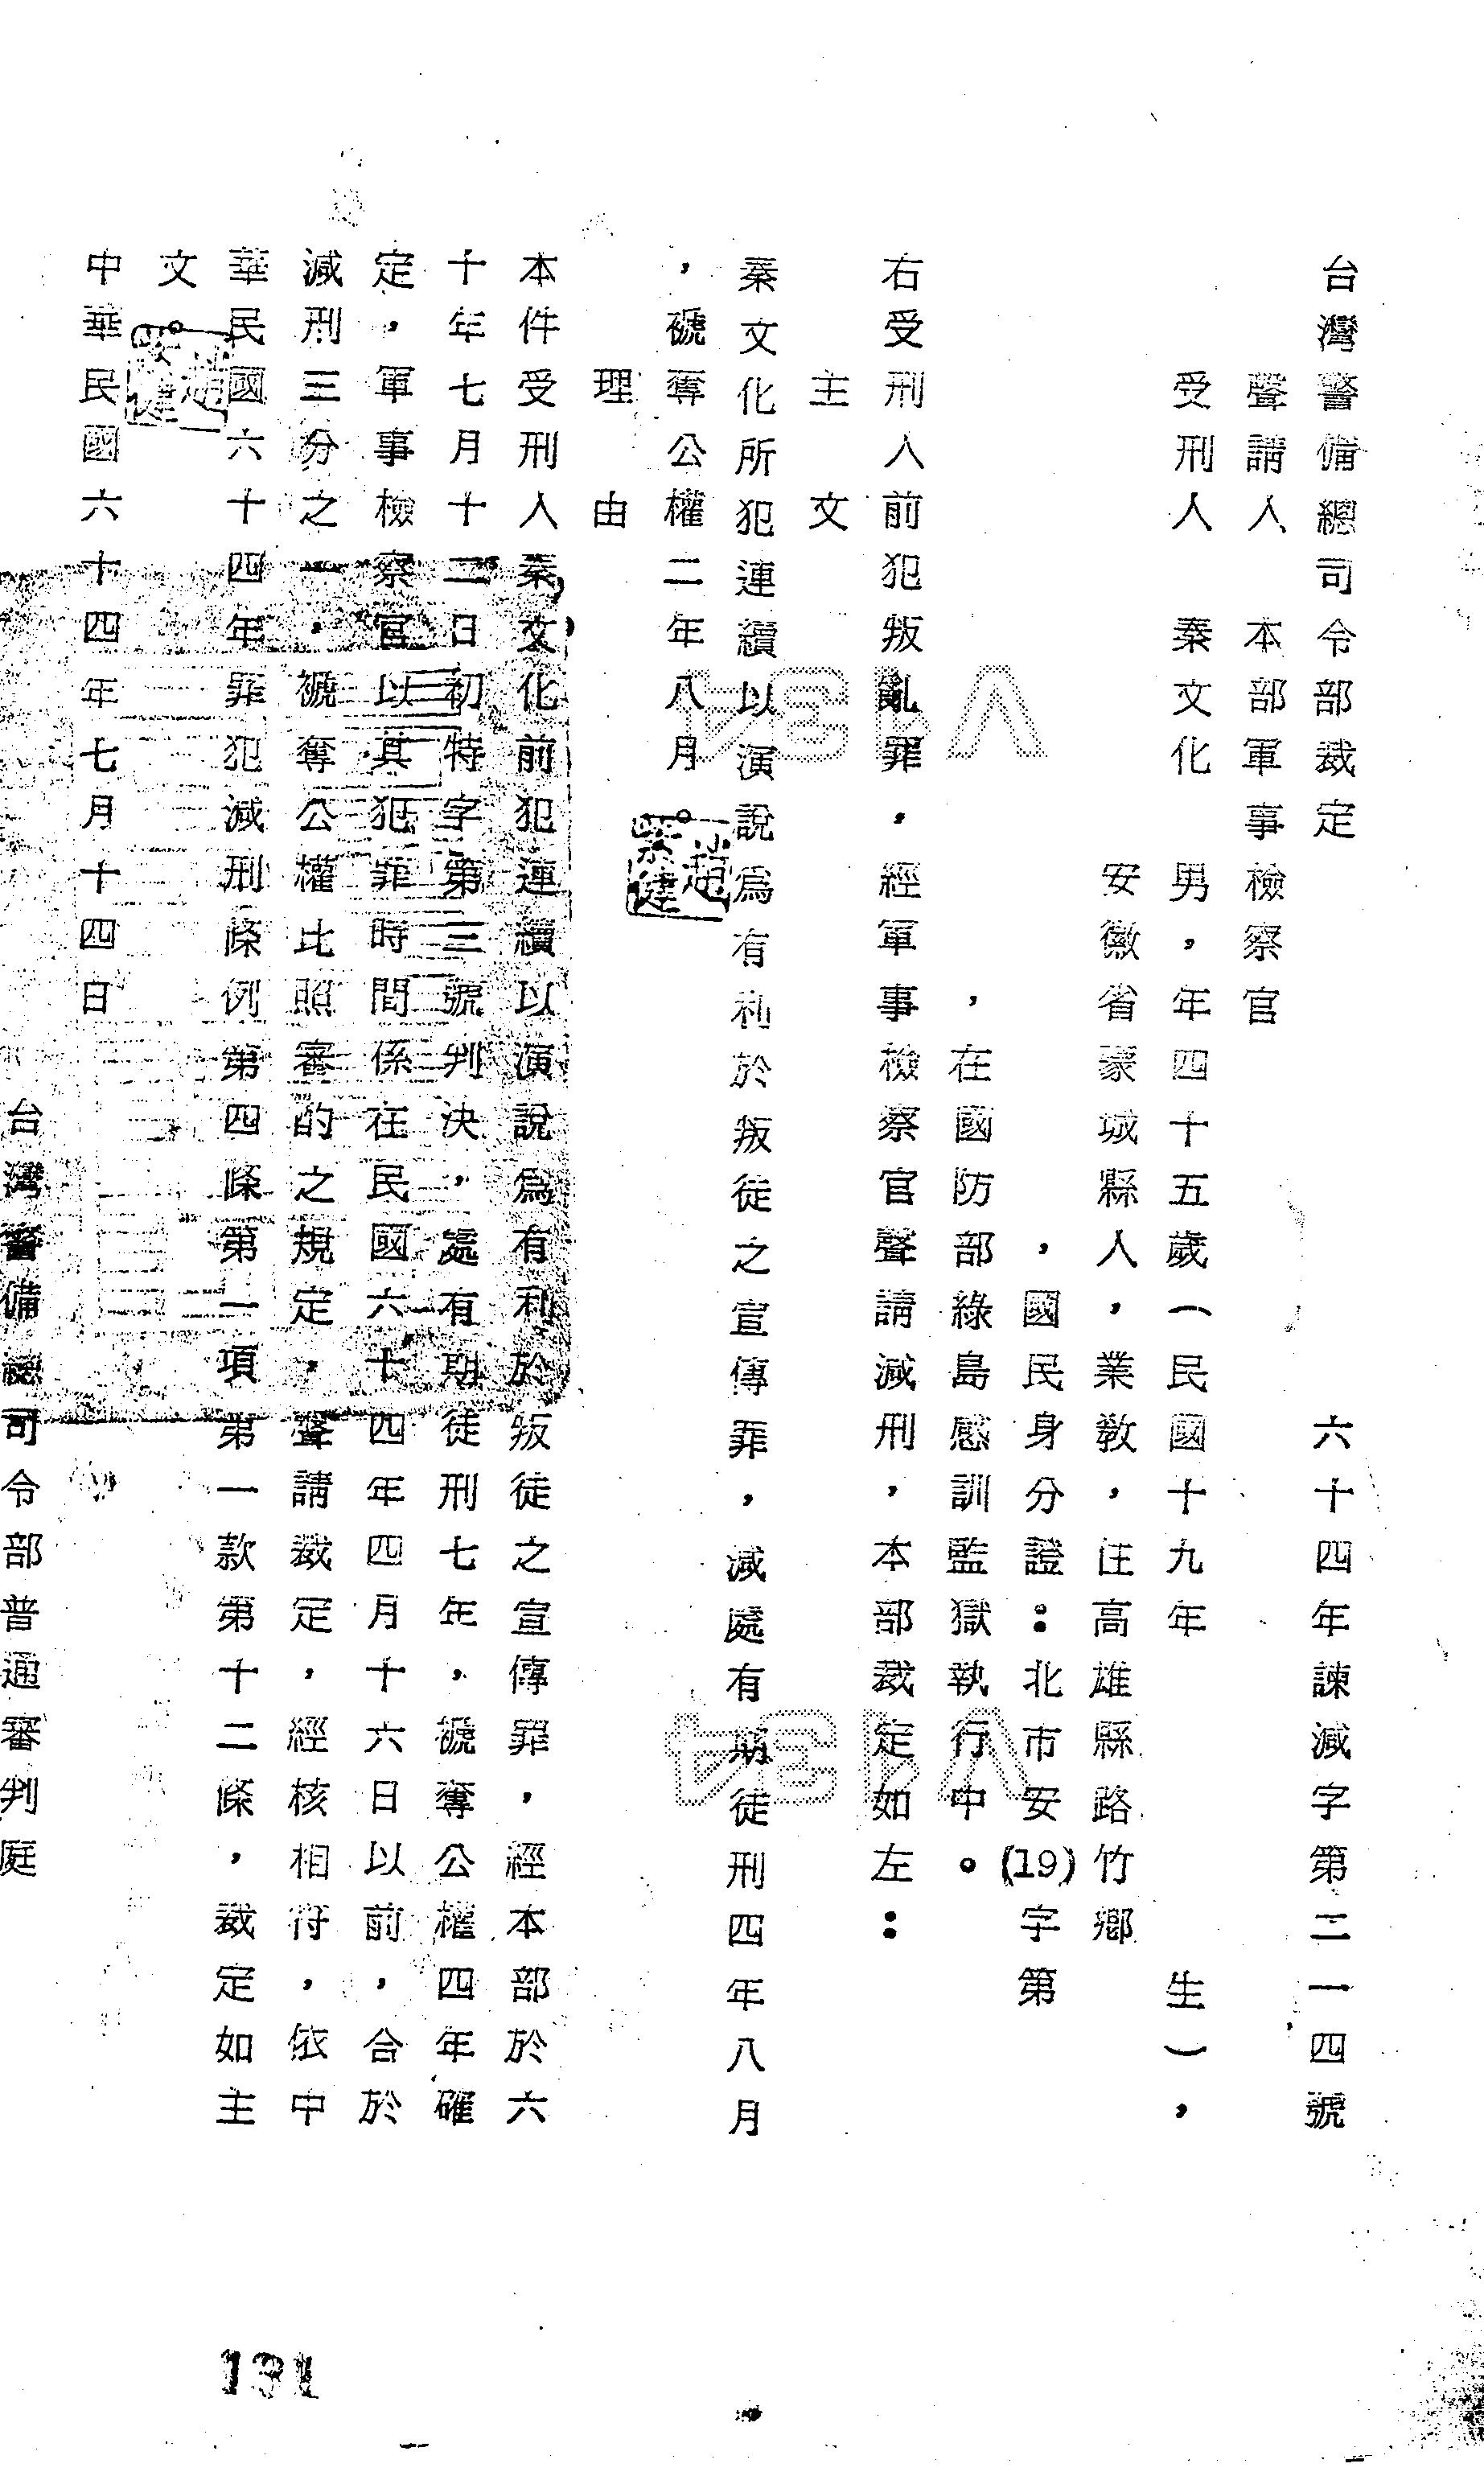 台灣警備總司令部裁定　六十四年諫減字第二一四號
聲請人　本部軍事檢察官
受刑人　秦文化　男，年四十五歲（民國十九年　生），
安徽省蒙城縣人，業教，住高雄縣路竹鄉
，國民身分證：北市安(19)字第
，在國防部綠島感訓監獄執行中。
右受刑人前犯叛亂罪，經軍事檢察官聲請減刑，本部裁定如左：
主文
秦文化所犯連續以演說為有利於叛徒之宣傳罪，減處有期徒刑四年八月
，褫奪公權二年八月
理由
本件受刑人秦文化前犯連續以演說為有利於叛徒之宣傳罪，經本部於六
十年七月十二日初特字第三號判決，處有期徒刑七年，褫奪公權四年確
定，軍事檢察官以其犯罪時間係在民國六十四年四月十六日以前，合於
減刑三分之一，褫奪公權比照審酌之規定，聲請裁定，經核相符，依中
華民國六十四年罪犯減刑條例第四條第一項第一款第十二條，裁定如主
文
中華民國六十四年七月十四日
台灣警備總司令部普通審判庭
V134
V134
131